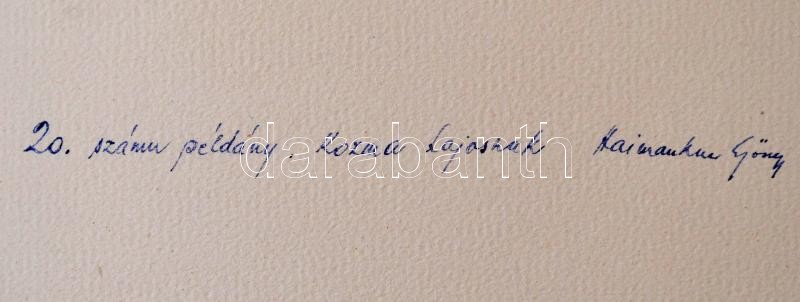 20. számu példány. Kozma Lajosnak Haiman
darabanth